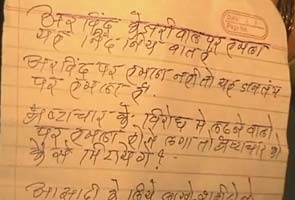 अरविंद केजरीवाल पर हमला
यह निंदनिय बात है
अरविंद पर हमला नही तो यह जनतंत्र
पर हमला है.
भ्रष्टाचार के विरोध मे लढने वालो
पर हमला होने लगा तो भ्रष्टाचार को
कैसे मिटायेंगे?
आझादी के लिये लाखो